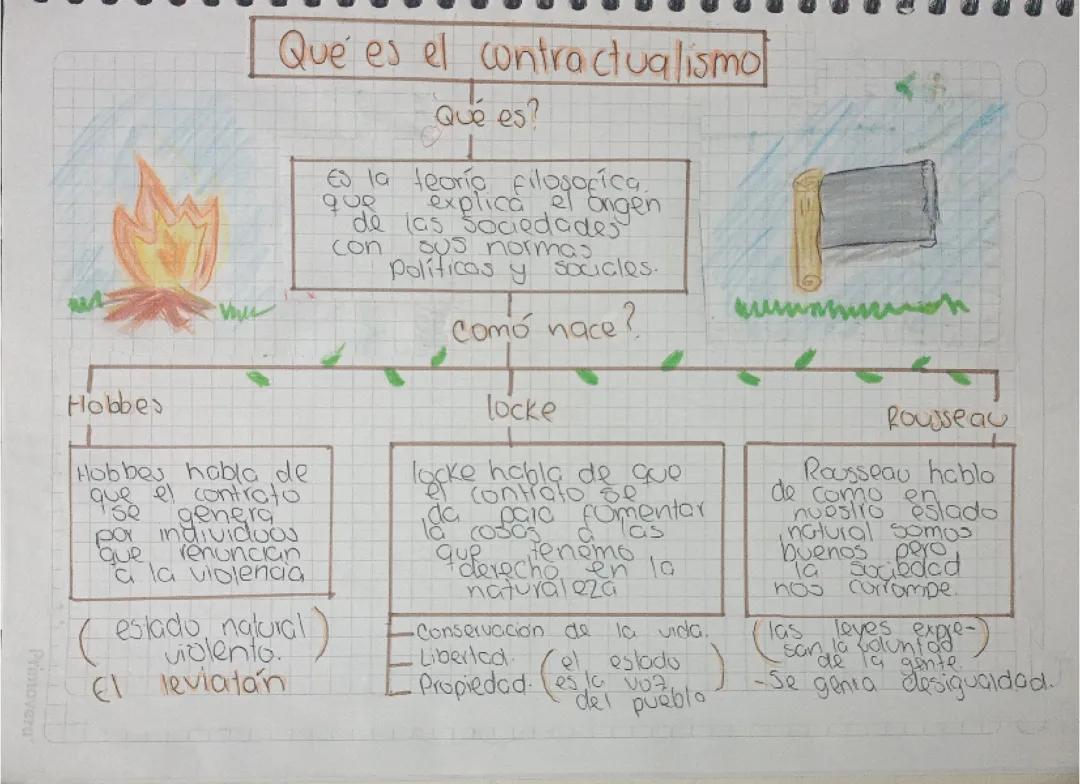 Qué es el contractualismo
Qué es?
Es la teoría filosofíca.
que explica el origen
de las sociedades
con sus normas
políticas y sociales.
Comó nace?
Hobbes
locke
Rousseau
Hobbes habla de
que el contrato
se genera
por individuos
que renuncian
a la violencia
(estado natural)
violento.
El leviatán
locke habla de que
el contrato se
da para fomentar
la cosas a las
que tenemo
derecho en la
naturaleza
-Conservacion de la vida.
-Libertad.
-Propiedad.
(el estado
es la voz
del pueblo)
Rousseau habla
de como en
nuestro estado
natural somos
buenos pero
la sociedad
nos corrompe.
(las leyes expre-
san la voluntad
de la gente)
-Se genra desigualdad.
Primavera